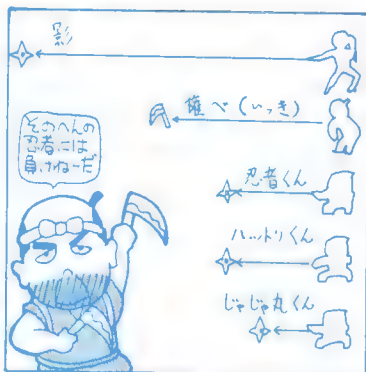 影
権べ(いっき)
忍者くん
ハットリくん
じゃじゃ丸くん
そのへんの
忍者には
負けねーだ